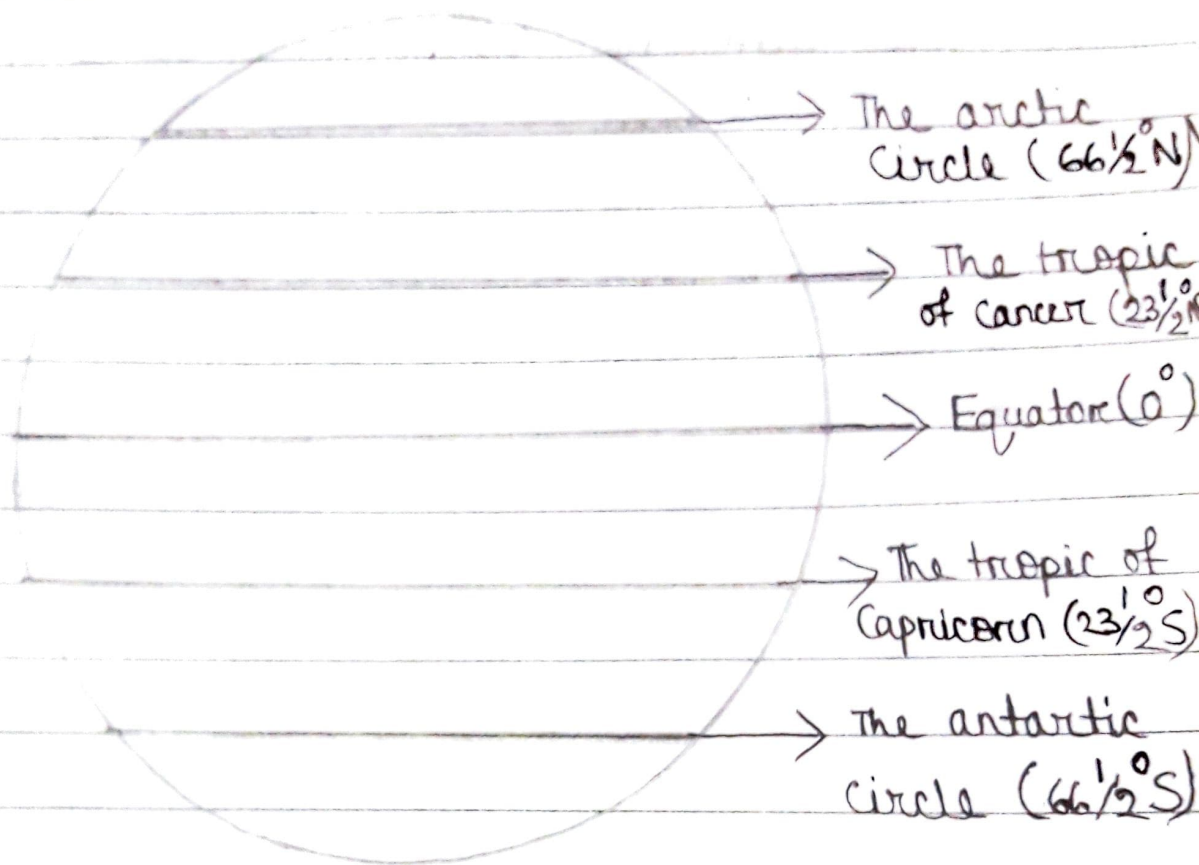 The arctic
Circle (66 1/2°N)
The tropic
of cancer (23 1/2°N
Equator (0°)
The tropic of
Capricorn (23 1/2°S)
The antartic
circle (66 1/2°S)